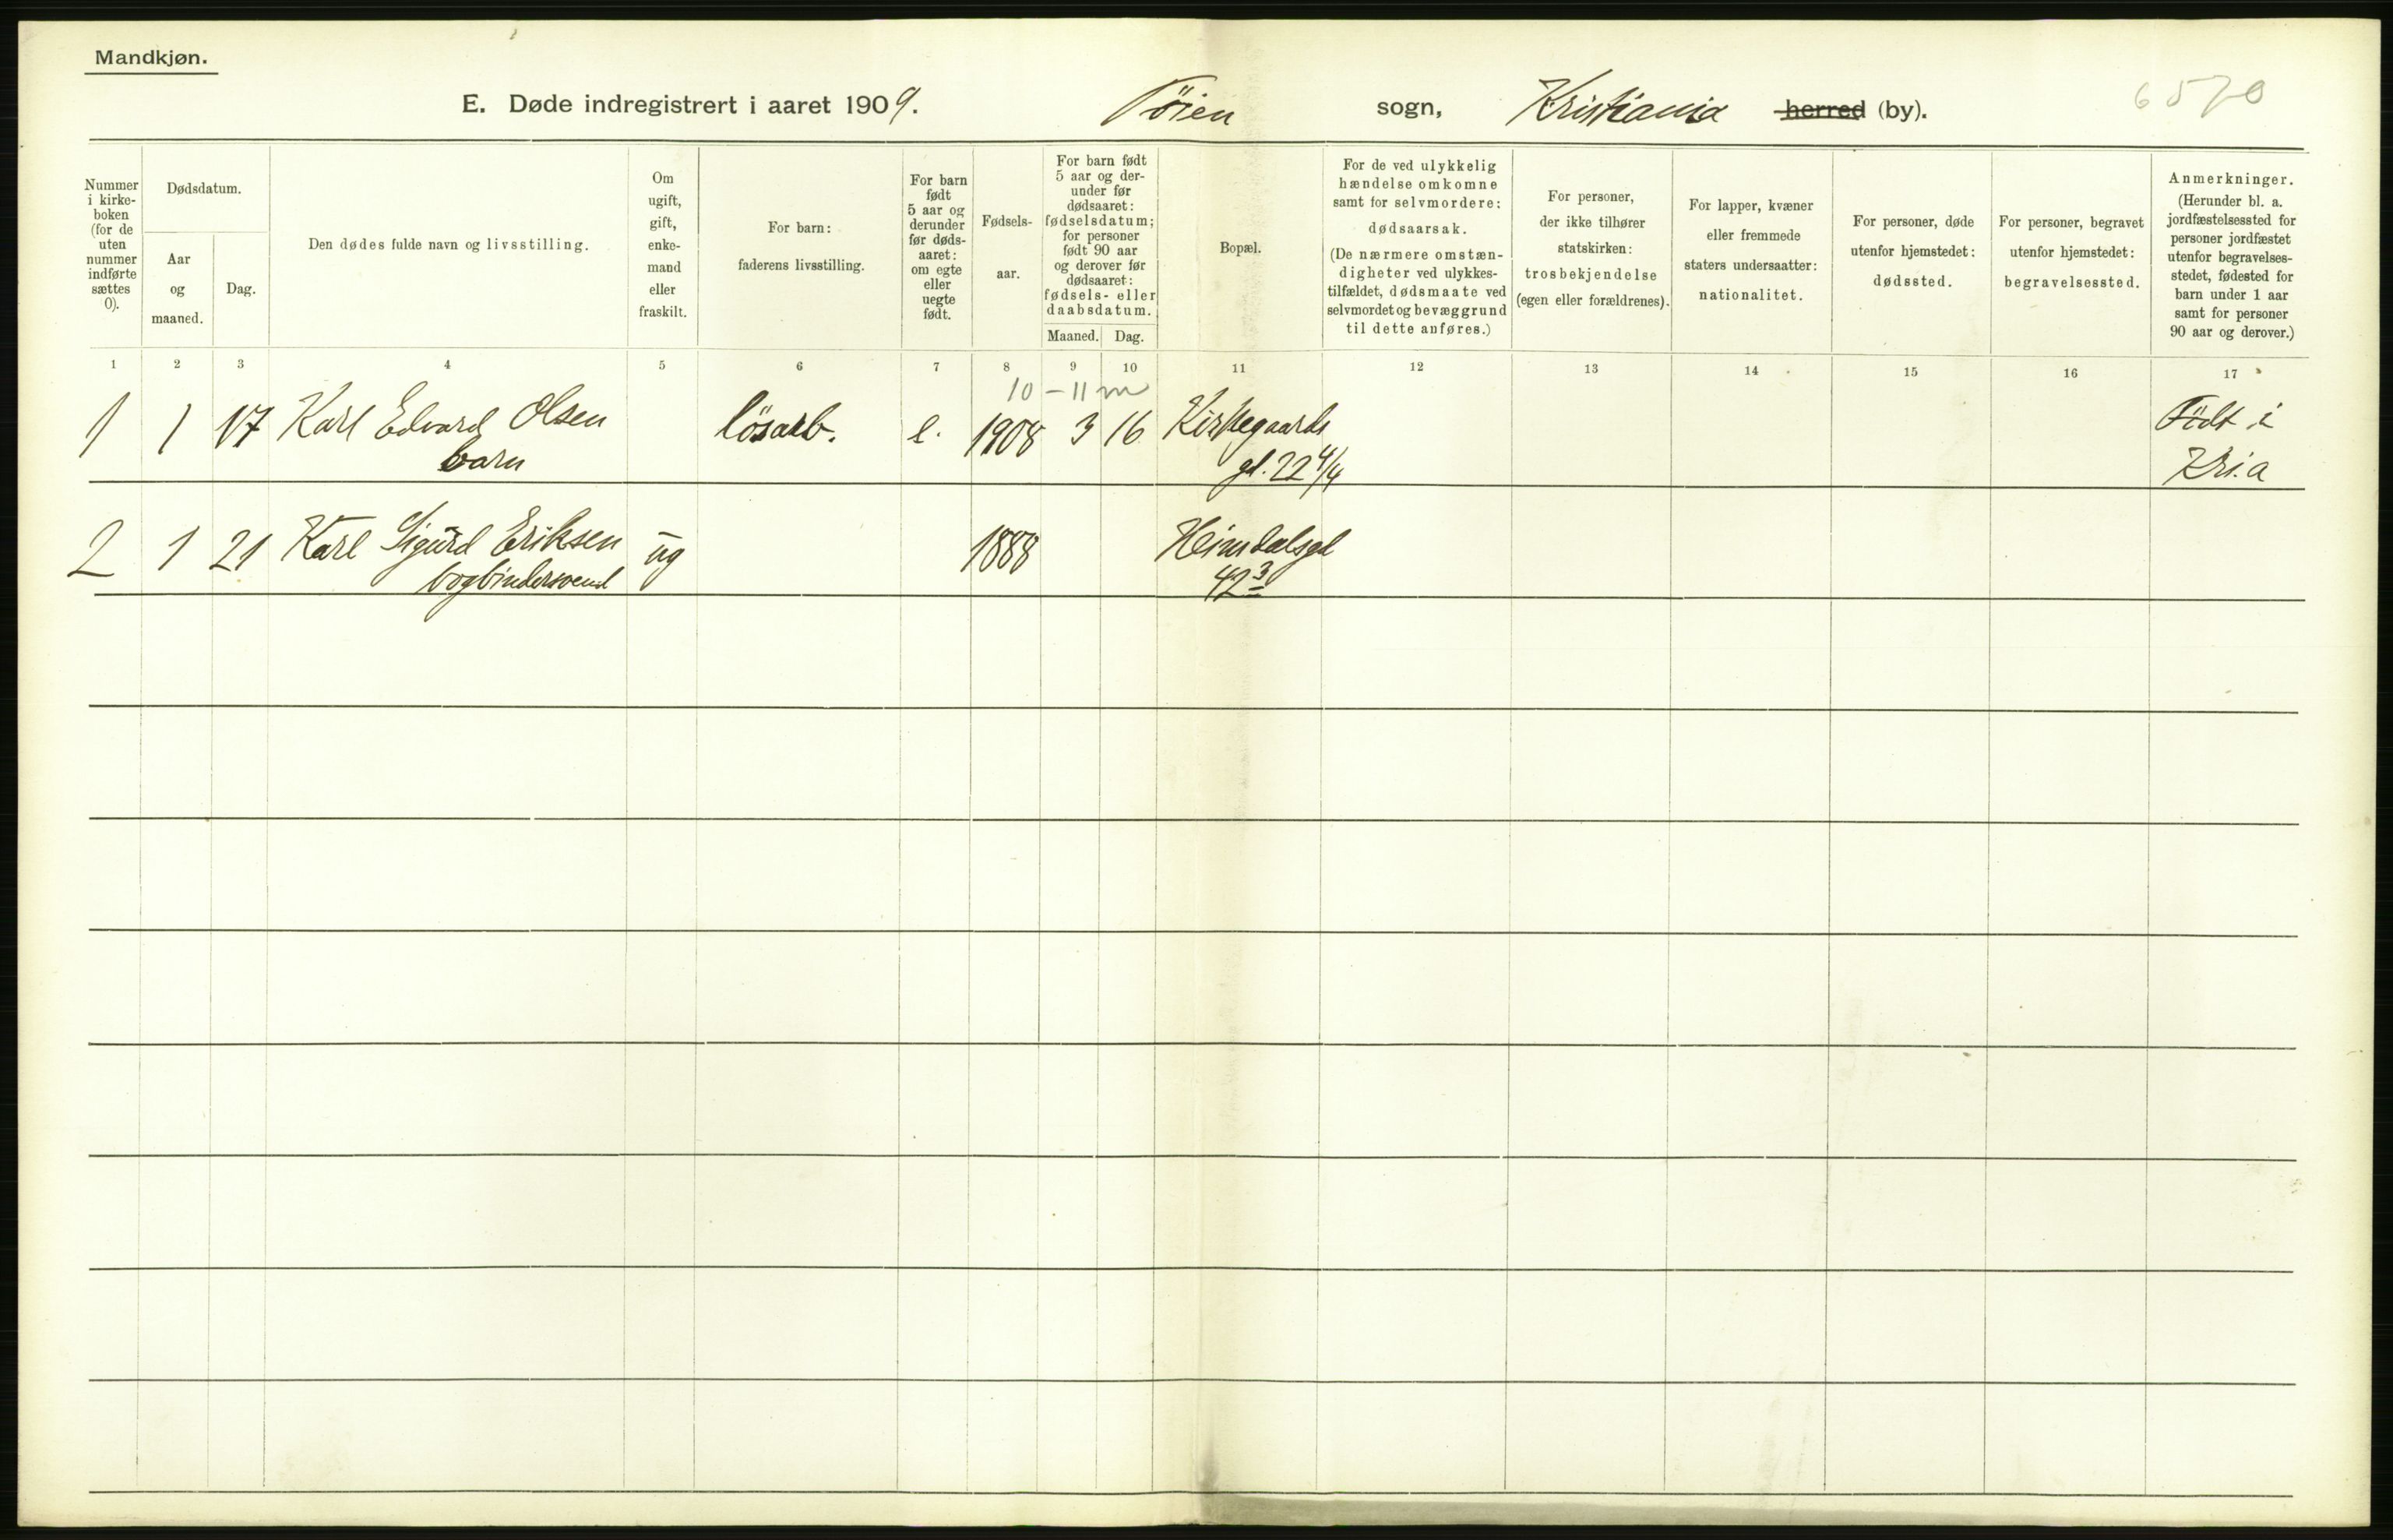 Mandkjøn.
E. Døde indregistrert i aaret 1909. Tøien sogn, Kristiania herred (by).
6570
Nummer i kirke-boken (for de uten nummer indførte sættes 0).
Dødsdatum.
Aar og maaned.
Dag.
Den dødes fulde navn og livsstilling.
Om ugift, gift, enke-mand eller fraskilt.
For barn: faderens livsstilling.
For barn født 5 aar og derunder før døds-aaret: om egte eller uegte født.
Fødsels-aar.
For barn født 5 aar og der-under før dødsaaret: fødselsdatum; for personer født 90 aar og derover før dødsaaret: fødsels- eller daabsdatum.
Maaned. Dag.
Bopæl.
For de ved ulykkelig hændelse omkomne samt for selvmordere: dødsaarsak. (De nærmere omstæn-digheter ved ulykkes-tilfældet, dødsmaate ved selvmordet og bevæggrund til dette anføres.)
For personer, der ikke tilhører statskirken: trosbekjendelse (egen eller forældrenes).
For lapper, kvæner eller fremmede staters undersaatter: nationalitet.
For personer, døde utenfor hjemstedet: dødssted.
For personer, begravet utenfor hjemstedet: begravelsessted.
Anmerkninger. (Herunder bl. a. jordfæstelsessted for personer jordfæstet utenfor begravelses-stedet, fødested for barn under 1 aar samt for personer 90 aar og derover.)
1 2 3 4 5 6 7 8 9 10 11 12 13 14 15 16 17
10 – 11 m
1 1 17 Karl Edvard Olsen løsarb. e. 1908 3 16 Kirkegaards Födt i
barn gd. 22 4/4 Kri.a
2 1 21 Karl Sigurd Eriksen ug 1888 Heimdalsgd
bogbindersvend 42 3